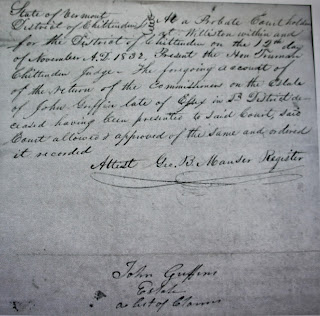 State of Vermont
District of Chittenden ss At a Probate Court holden
at Williston within and
for the District of Chittenden on the 12th day
of November A.D. 1832. Present the Hon Truman
Chittenden Judge. The foregoing account of
of the return of the Commissioners on the Estate
of John Griffin late of Essex in sd District de-
ceased having been presented to said Court, said
Court allowed & approved of the same and ordered
it recorded
Attest Geo. B. Manser Register
John Griffins
Estate
a List of Claims